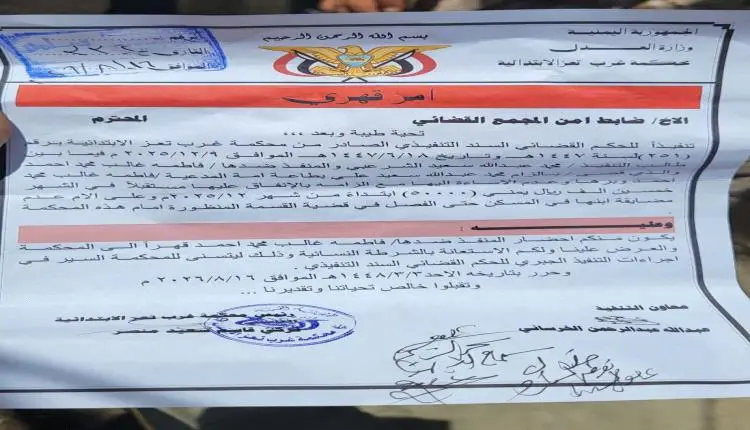 بسم الله الرحمن الرحيم
الجمهورية اليمنية
وزارة العدل
محكمة غرب تعز الابتدائية
امر قهري
الاخ/ ضابط امن المجمع القضائي المحترم
تحية طيبة وبعد ...
تنفيذاً للحكم القضائي السند التنفيذي الصادر من محكمة غرب تعز الابتدائية برقم
(٢٥١) لسنة ١٤٤٧هـ وتاريخ ١٤٤٧/٦/١٨هـ الموافق ٢٠٢٥/١٢/٩م فيما بين
طالب التنفيذ / محمد عبدالله الشرعبي والمنفذ ضدها/ فاطمه غالب محمد احمد
والذي الزام محمد عبدالله سعيد علي بطاعة امه المدعية/ فاطمه غالب محمد
اليها مع الزامه بالانفاق عليها مستقبلاً في الشهر
خمسين الف ريال يمني (٥٠٠٠٠) ابتداءً من شهر ٢٠٢٥/١٢م وعلى الام عدم
مضايقة ابنها في المسكن حتى الفصل في قضية القسمة المنظورة امام هذه المحكمة
وعليه :
يكون منكم احضار المنفذ ضدها/ فاطمه غالب محمد احمد قهراً الى المحكمة
والعرض علينا ولكم الاستعانة بالشرطة النسائية وذلك ليتسنى للمحكمة السير في
اجراءات التنفيذ الجبري للحكم القضائي السند التنفيذي .
وحرر بتاريخه الاحد ١٤٤٨/٣/٣هـ الموافق ٢٠٢٦/٨/١٦م
وتقبلوا خالص تحياتنا وتقديرنا ...
معاون التنفيذ
عبدالله عبدالرحمن الخرساني
رئيس محكمة غرب تعز الابتدائية